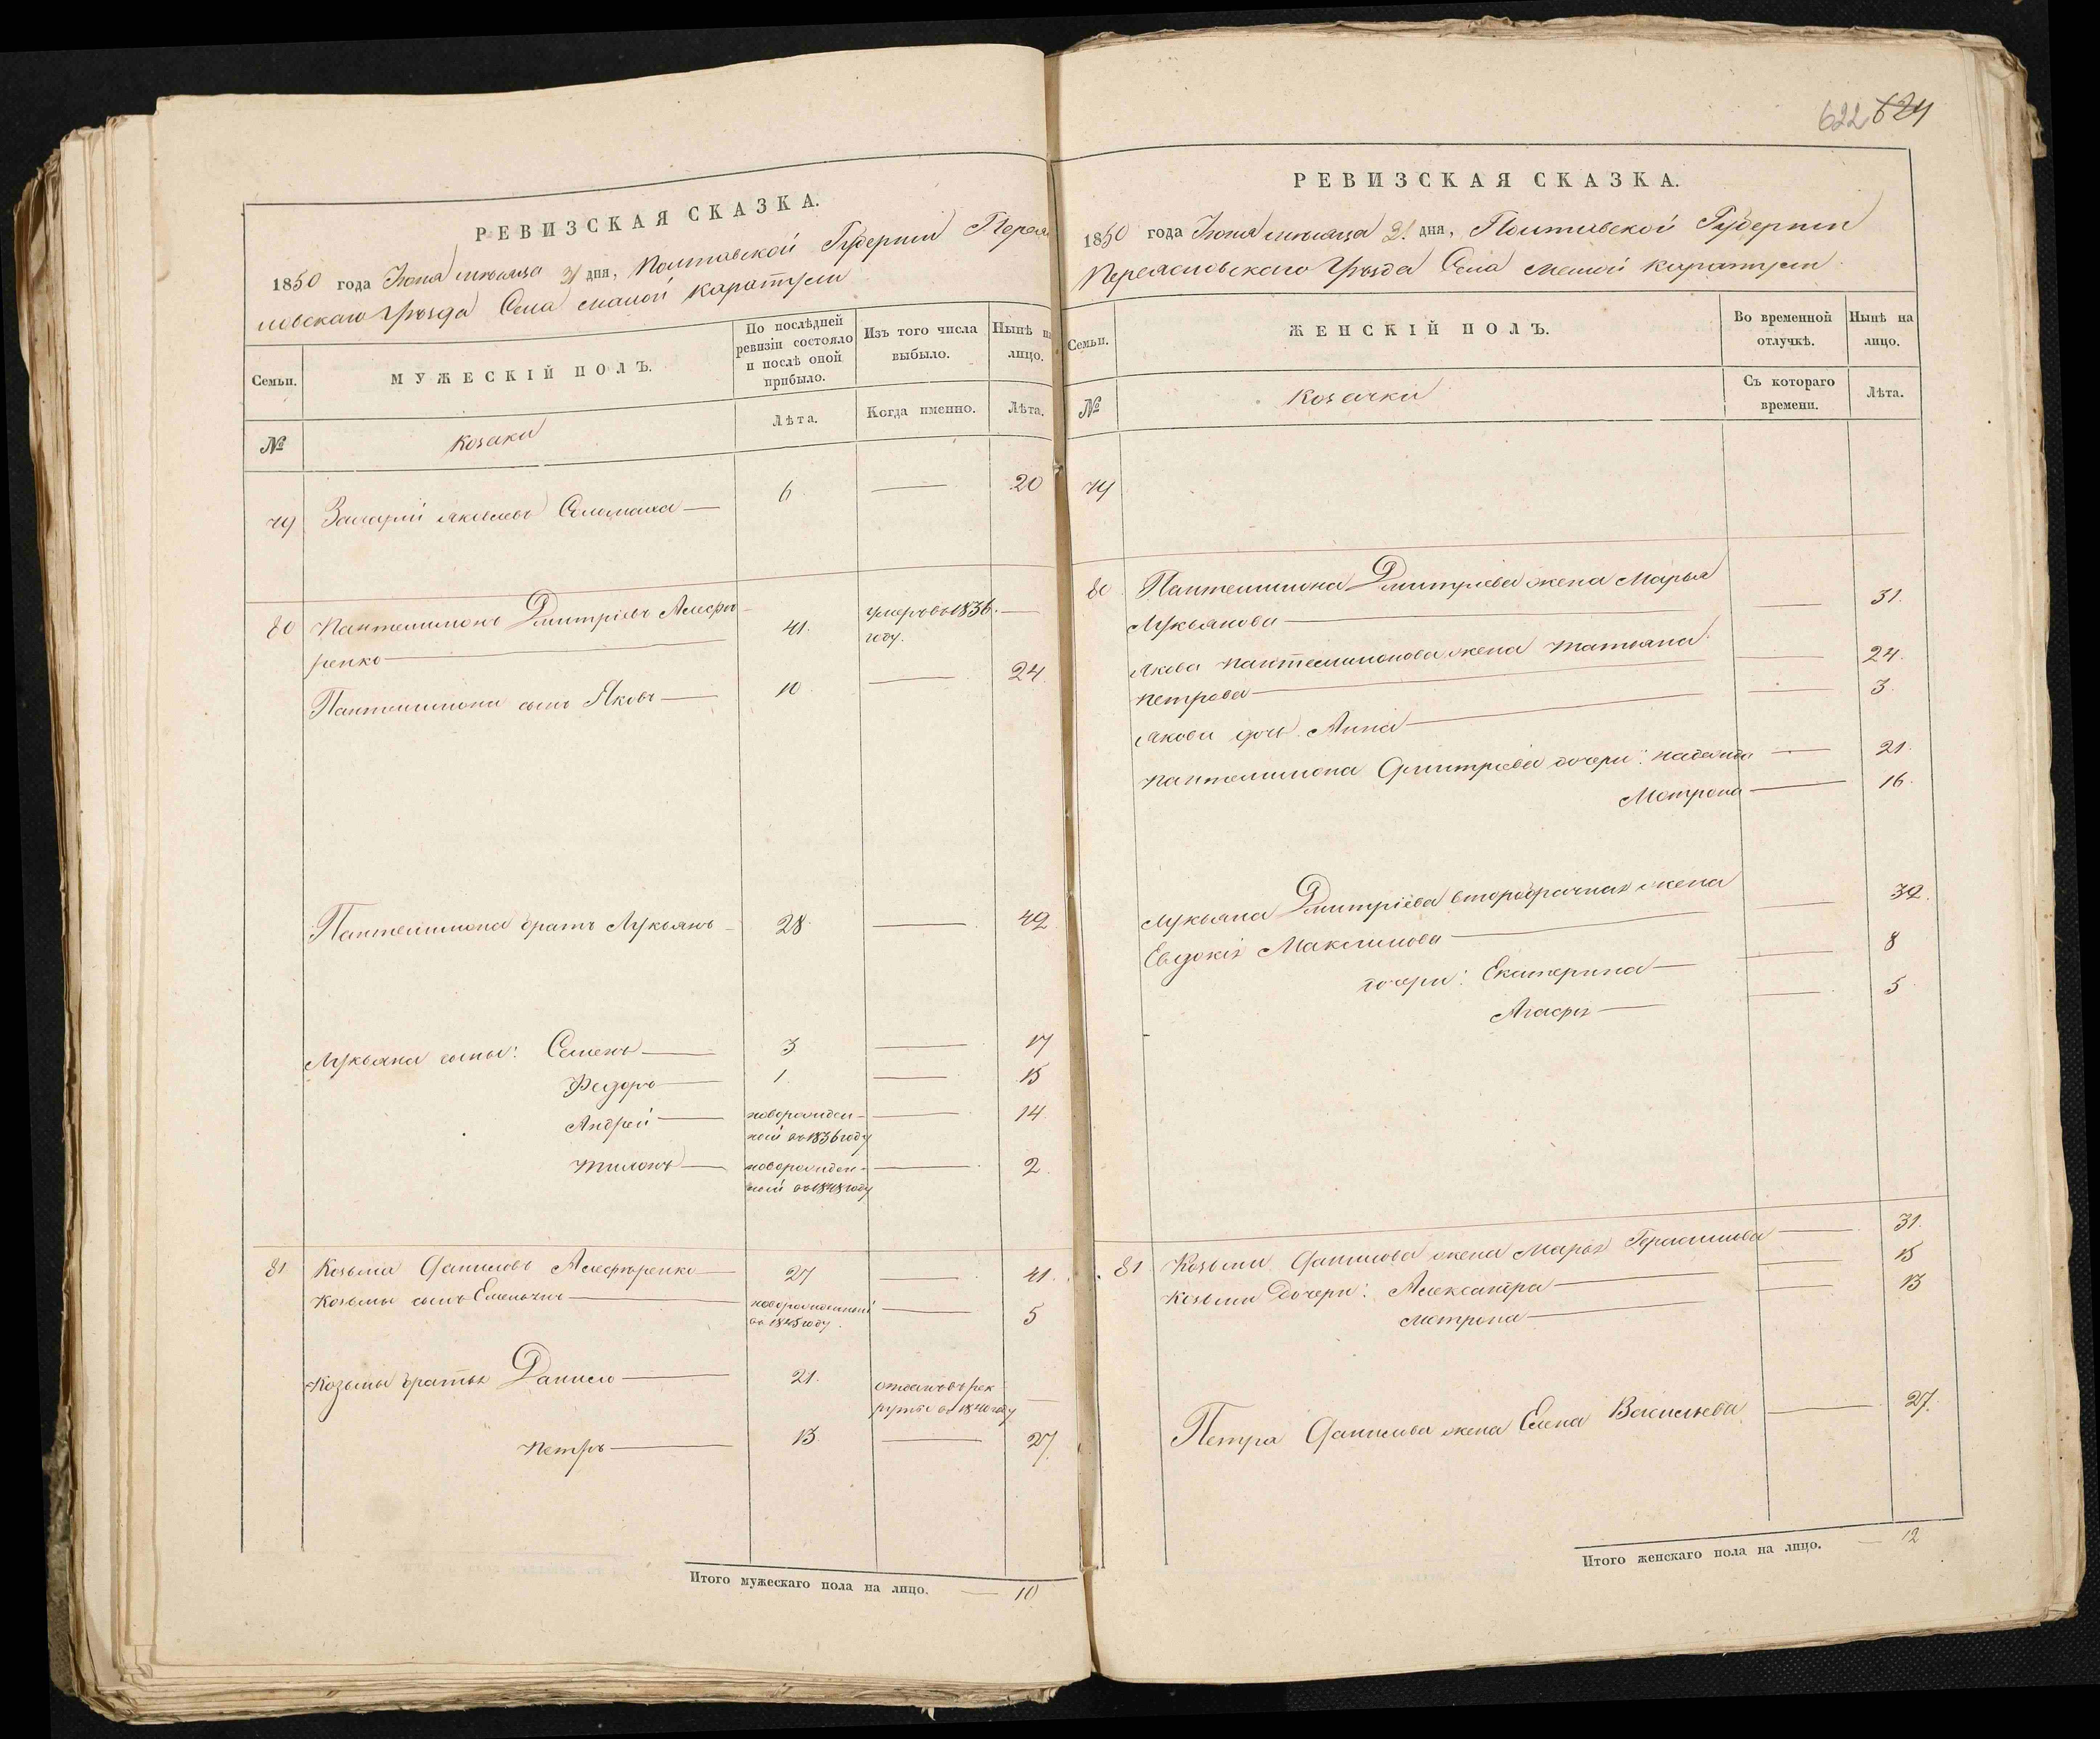 622 624
РЕВИЗСКАЯ СКАЗКА.
1850 года Іюня мѣсяца 21 дня, Полтавской Губерніи Перея
словскаго Уѣзда Села малой каратули
Семьи.
МУЖЕСКІЙ ПОЛЪ.
По послѣдней ревизіи состояло и послѣ оной прибыло.
Изъ того числа выбыло.
Нынѣ на лицо.
№
козаки
Лѣта.
Когда именно.
Лѣта.
79 Захарій Соломаха — 6. — 20
80 Пантелимонъ Дмитріевъ Алефи
ренко — 41. умеръ въ 1836. году. —
Пантелимона сынъ Яковъ — 10. — 24.
Пантелимона братъ Лукьянъ — 28. — 42
Лукьяна сыны: Семенъ — 3 — 17
Федоръ — 1. — 15
Андрей — новорожден-
ный въ 1836 году — 14
Тихонъ — новорожден-
ный въ 1848 году — 2.
81 Козьма Даниловъ Алефиренко — 27 — 41.
Козьмы сынъ Емельянъ — новорожденный
въ 1845 году. — 5
Козьмы братья Данило — 21. отданъ въ рек
руты въ 1840 году —
Петръ — 13. — 27.
Итого мужескаго пола на лицо. — 10
РЕВИЗСКАЯ СКАЗКА.
1850 года Іюня мѣсяца 21 дня, Полтавской Губерніи
Переясловскаго Уѣзда Села малой каратули
Семьи.
ЖЕНСКІЙ ПОЛЪ.
Во временной отлучкѣ.
Нынѣ на лицо.
№
козачки
Съ котораго времени.
Лѣта.
79
80 Пантелимона Дмитріева жена Марья
Лукьянова — — 31.
Якова Пантелимонова жена Татьяна
Петрова — — 24.
Якова дочь Анна — — 3.
Пантелимона Дмитріева дочери: Надежда — 21.
Мотрона — 16.
Лукьяна Дмитріева второбрачная жена
Евдокія Максимова — — 39.
дочери: Екатерина — — 8
Агафья — — 5
81 Козьмы Данилова жена Марья Герасимова — 31.
Козьмы дочери: Александра — — 15
Мотрона — — 13
Петра Данилова жена Елена Васильева — 27.
Итого женскаго пола на лицо. — 12